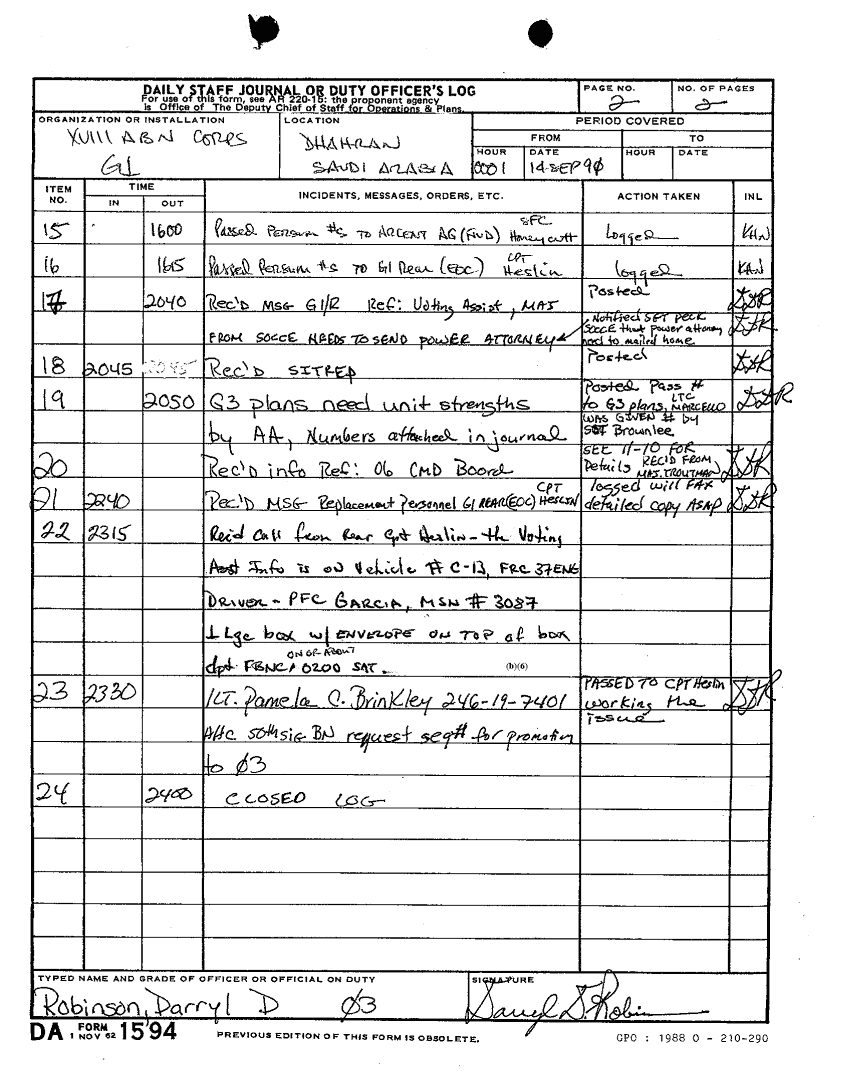 DAILY STAFF JOURNAL OR DUTY OFFICER'S LOG
For use of this form, see AR 220-15; the proponent agency
is Office of The Deputy Chief of Staff for Operations & Plans.
PAGE NO.
2
NO. OF PAGES
2
ORGANIZATION OR INSTALLATION
XVIII ABN CORPS
G1
LOCATION
DHAHRAN
SAUDI ARABIA
PERIOD COVERED
FROM
TO
HOUR
DATE
HOUR
DATE
0001
14 SEP 90
ITEM NO.
TIME
IN
OUT
INCIDENTS, MESSAGES, ORDERS, ETC.
ACTION TAKEN
INL
15 1600 Passed Persum #s to ARCENT AG (FWD) SFC Honeycutt logged KAN
16 1615 Passed Persum #s to G1 Rear (EOC) CPT Heslin logged KAN
17 2040 Rec'd MSG G1/R Ref: Voting Assist, MAJ Posted
FROM SOCCE NEEDS TO SEND POWER ATTORNEY
Notified SGT Peck
SOCCE that power attorney
need to mailed home
DDR
18 2045 2045 Rec'D SITREP Posted DDR
19 2050 G3 plans need unit strengths
by AA, Numbers attached in journal
Posted Pass #
to G3 plans, LTC MARCELLO
WAS GIVEN # by
SGT Brownlee
DDR
20 Rec'd info Ref: 06 CMD Board
SEE 11-10 FOR
Details REC'D FROM
MAJ. TROUTMAN
DDR
21 2240 Rec'D MSG Replacement Personnel G1 REAR (EOC) CPT HESLIN
logged will FAX
detailed copy ASAP
DDR
22 2315 Rec'd Call from Rear Cpt Heslin - the Voting
Asst Info is on Vehicle # C-13, FRC 37ENG
DRIVER - PFC GARCIA, MSN # 3087
1 Lge box w/ ENVELOPE ON TOP of box
ON OR ABOUT
dpt FBNC 0200 SAT.
(b)(6)
23 2330 1LT. Pamela C. Brinkley 246-19-7401
HHC 50th sig BN request seq# for promotion
to 03
PASSED TO CPT Heslin
working the
issue
DDR
24 2400 CLOSED LOG
TYPED NAME AND GRADE OF OFFICER OR OFFICIAL ON DUTY
Robinson, Darryl D 03
SIGNATURE
Darryl D. Robin
DA FORM 1 NOV 62 1594
PREVIOUS EDITION OF THIS FORM IS OBSOLETE.
GPO : 1988 O - 210-290